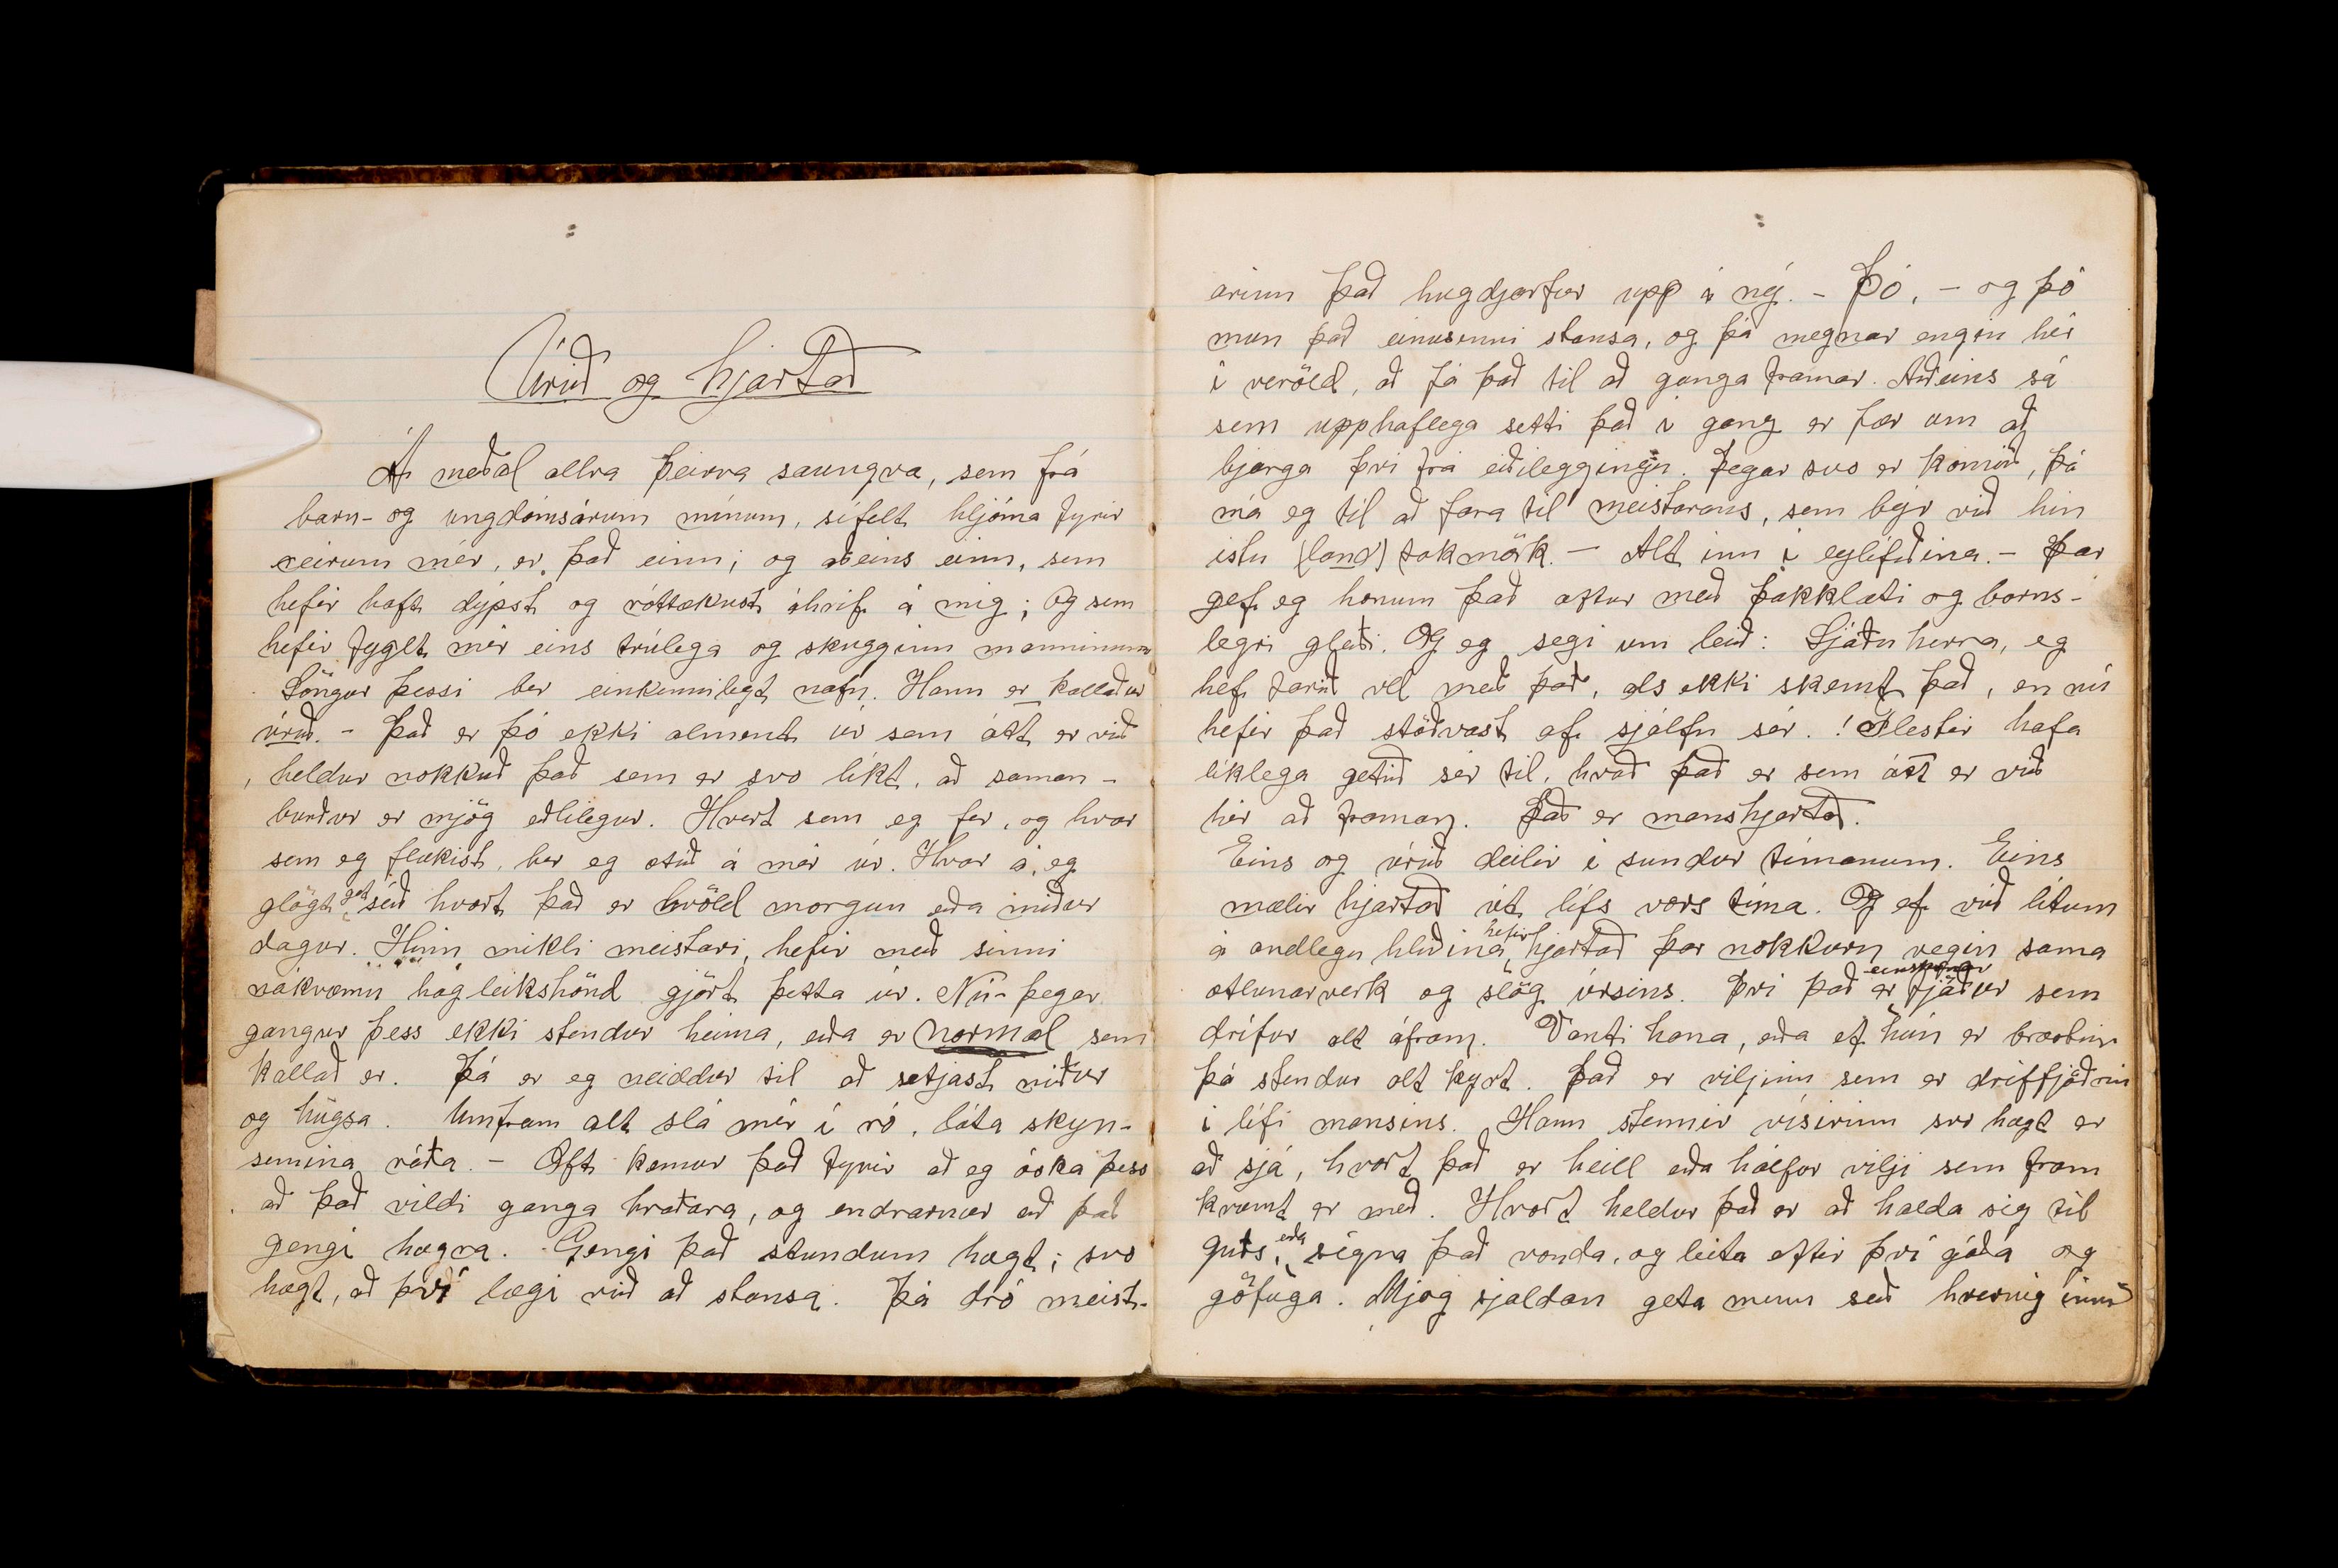 Úrið og hjartað
Á meðal allra þeirra saungva, sem frá
barn- og ungdómsárum mínum, sífelt hljóma fyrir
eeirum mér, er það einn; og aðeins einn, sem
hefir haft dýpst og róttækust áhrif á mig; og sem
hefir fyglt mér eins trúlega og skugginn manninum
Söngur þessi ber einkennilegt nafn. Hann er kallaður
úrið. - Það er þó ekki alment úr sem átt er við
heldur nokkuð það sem er svo líkt, að saman-
burður er mjög eðlilegur. Hvert sem eg fer, og hvar
sem eg flækist, ber eg ætið á mér úr. Hvar á, eg
glögt get séð hvort það er kvöld morgun eða miður
dagur. Hinn mikli meistari, hefir með sinni
nákvæmu hagleikshönd gjört þetta úr. Nú - þegar
gangur þess ekki stendur heima, eða er normal sem
kallað er. Þá er eg neiddur til að setjast niður
og hugsa. Umfram alt slá mér í ró, láta skyn-
semina ráða. - Oft kemur það fyrir að eg óska þess
að það vildi ganga hraðara, og endrarnær að það
gengi hægra. Gengi það stundum hægt; svo
hægt, að því lægi við að stansa. Þá dró meist-
arinn það hugdjarfur upp á ný. - Þó, - og þó
mun það einusinni stansa, og þá megnar engin hér
í veröld, að fá það til að ganga framar. Aðeins sá
sem upphaflega setti það í gang er fær um að
bjarga því frá eiðileggingu. Þegar svo er komið, þá
má eg til að fara til meistarans, sem býr við hin
istu (land) takmörk. - Alt inn í eylífðina. - Þar
gef eg honum það aftur með þakklæti og barns-
legri gleði. Og eg segi um leið: Sjáðu herra, eg
hef farið vel með það, als ekki skemt það, en nú
hefir það stöðvast af sjálfu sér. ! Flestir hafa
líklega getið sér til, hvað það er sem átt er við
hér að framan. Það er manshjartað.
Eins og úrið deilir í sundur tímanum. Eins
mælir hjartað út lífs vors tíma. Og ef við lítum
á andlegu hliðina, hefir hjartað þar nokkurn vegin sama
ætlunarverk og slög úrsins. Því það er fjáður sem
drífur alt áfram. Vanti hana, eða ef hún er brostin
þá stendur alt kyrt. Það er viljinn sem er driffjöðrin
í lífi mansins. Hann stemir vísirinn svo hægt er
að sjá, hvort það er heill eða hálfur vilji sem fram
kvæmt er með. Hvort heldur það er að halda sig til
guðs, eða vegna það vonda, og leita eftir því góða og
göfuga. Mjög sjaldan geta menn séð hvernig innri